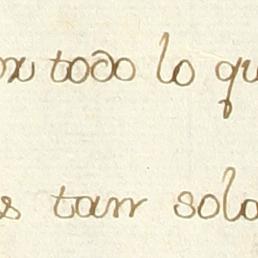 en todo lo qu
s tan sola